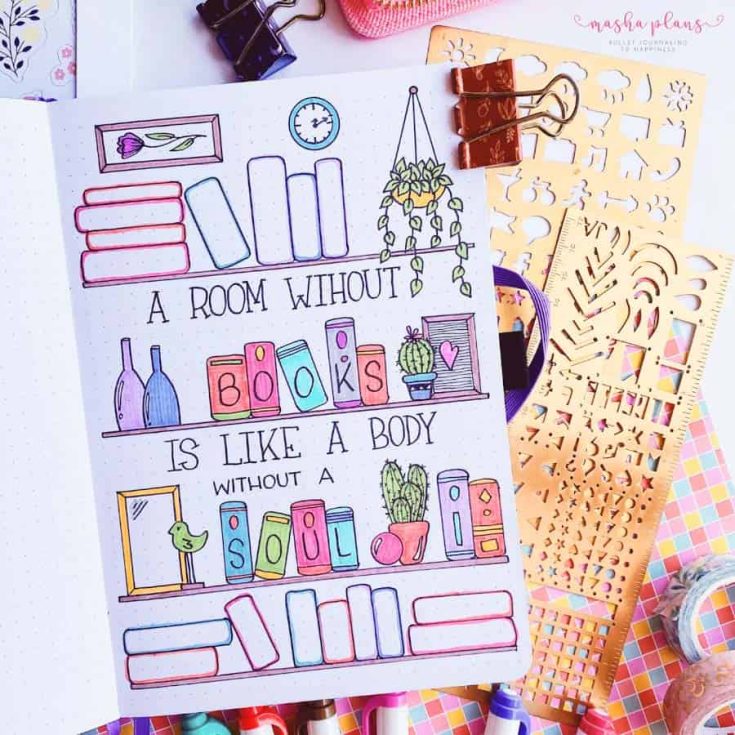 masha plans
BULLET JOURNALING
TO HAPPINESS
A ROOM WIHOUT
BOOKS
IS LIKE A BODY
WITHOUT A
SOUL